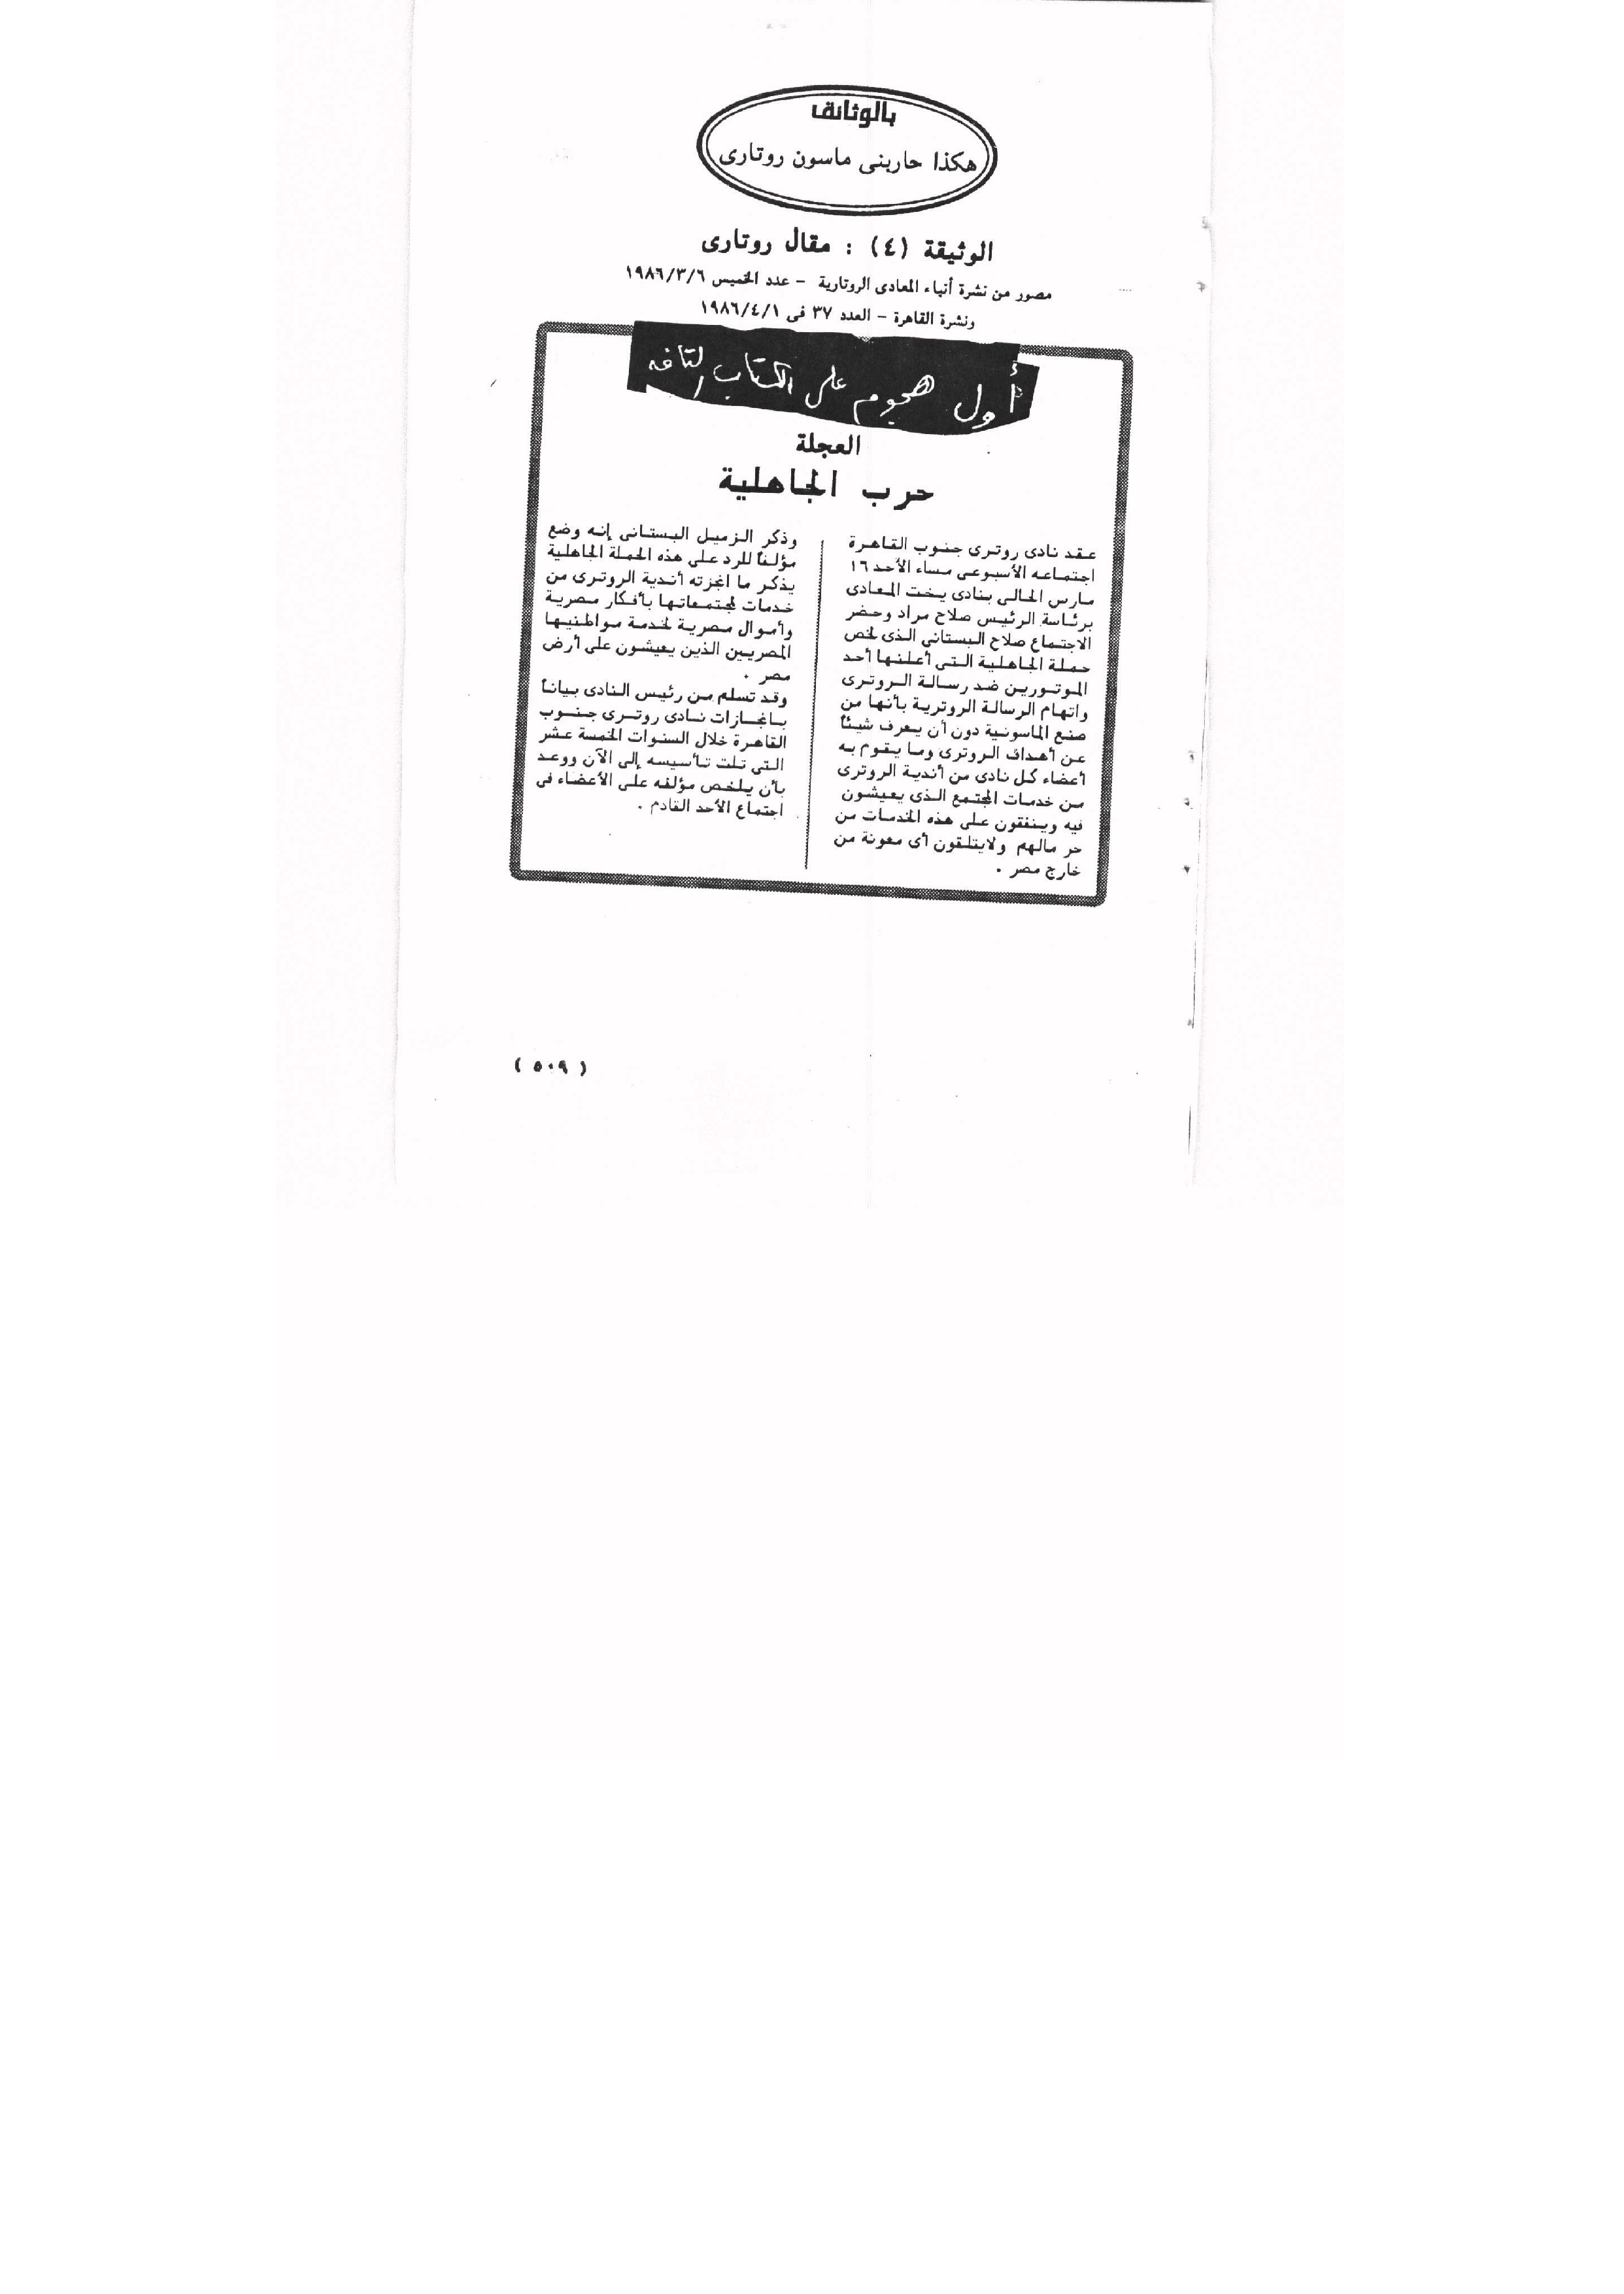 بالوثائق
هكذا حاربنى ماسون روتارى
الوثيقة (٤) : مقال روتارى
مصور من نشرة أنباء المعادى الروتارية – عدد الخميس ١٩٨٦/٣/٦
ونشرة القاهرة – العدد ٣٧ فى ١٩٨٦/٤/١
أول هجوم على الكتاب التافه
العجلة
حرب الجاهلية
عقد نادى روترى جنوب القاهرة
اجتماعه الأسبوعى مساء الأحد ١٦
مارس الحالى بنادى يخت المعادى
برئاسة الرئيس صلاح مراد وحضر
الاجتماع صلاح البستانى الذى لخص
حملة الجاهلية التى أعلنها أحد
الموتورين ضد رسالة الروترى
واتهام الرسالة الروترية بأنها من
صنع الماسونية دون أن يعرف شيئاً
عن أهداف الروترى وما يقوم به
أعضاء كل نادى من أندية الروترى
من خدمات المجتمع الذى يعيشون
فيه وينفقون على هذه الخدمات من
حر مالهم ولايتلقون أى معونة من
خارج مصر .
وذكر الزميل البستانى إنه وضع
مؤلفاً للرد على هذه الحملة الجاهلية
يذكر ما انجزته أندية الروترى من
خدمات لمجتمعاتها بأفكار مصرية
وأموال مصرية لخدمة مواطنيها
المصريين الذين يعيشون على أرض
مصر .
وقد تسلم من رئيس النادى بياناً
بانجازات نادى روترى جنوب
القاهرة خلال السنوات الخمسة عشر
التى تلت تأسيسه إلى الآن ووعد
بأن يلخص مؤلفه على الأعضاء فى
اجتماع الأحد القادم .
( ٥٠٩ )